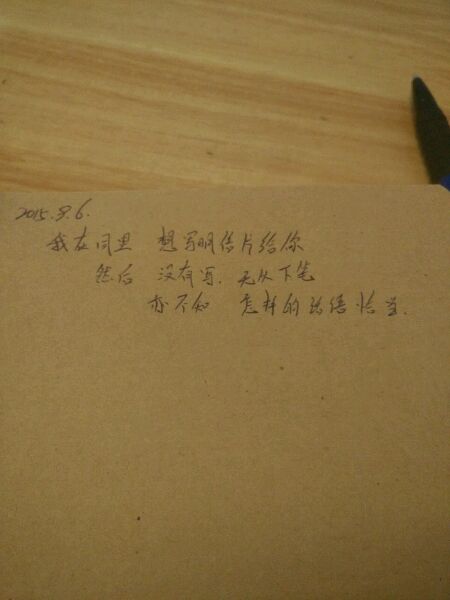 2015.9.6.
我在同里 想写明信片给你
然后 没有写，无从下笔
亦不知 怎样的话语恰当.